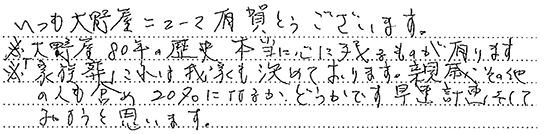 いつも大野屋ニュース有賀とうございます。
※大野屋80年の歴史 本当に心に残るものが有ります
※「家族葬」これは我家も決めております。親戚その他
の人も含め 20名になるか、どうかです 早速計画して
みようと思います。